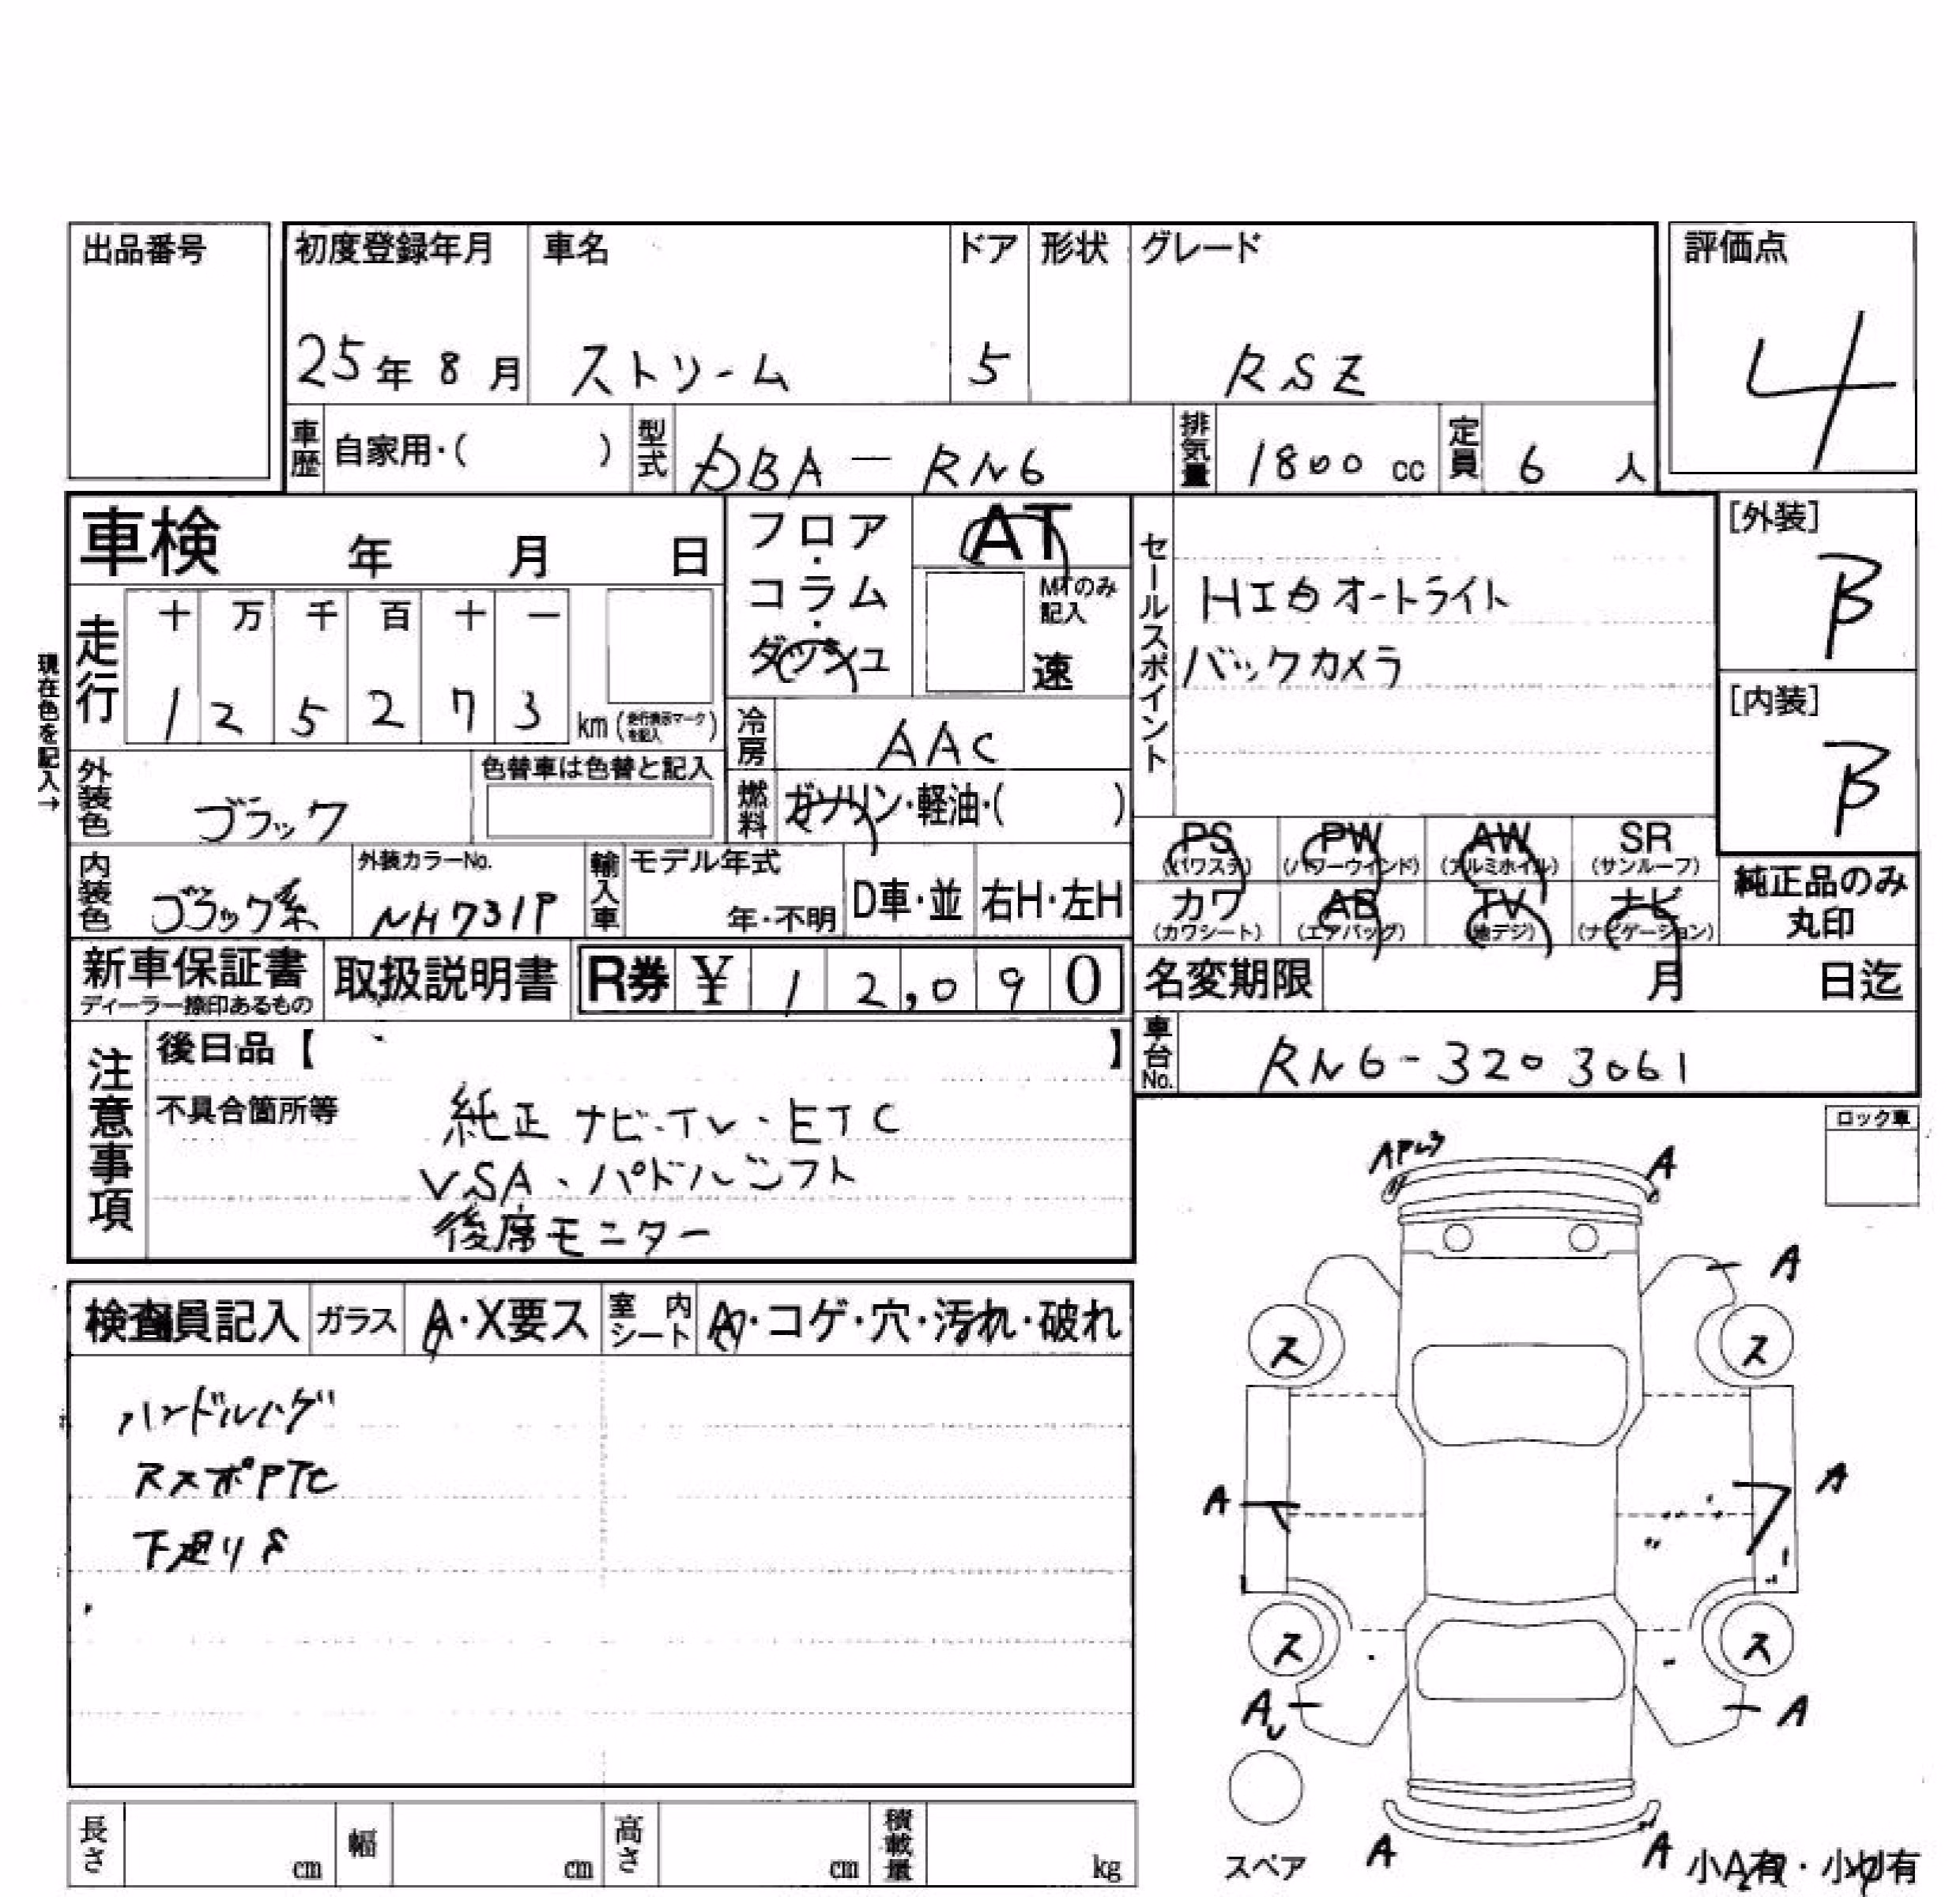 出品番号
初度登録年月 車名 ドア 形状 グレード 評価点
25年 8月 ストリーム 5 RSZ 4
車歴 自家用・( ) 型式 DBA-RN6 排気量 1800 cc 定員 6 人
車検 年 月 日
フロア・コラム・ダッシュ
AT
MTのみ記入
速
セールスポイント
HIDオートライト
バックカメラ
[外装]
B
[内装]
B
現在色を記入→
走行 十 万 千 百 十 一
1 2 5 2 7 3 km (走行表示マークを記入)
冷房 AAC
外装色 ブラック 色替車は色替と記入
燃料 ガソリン・軽油・( )
PS (パワステ) PW (パワーウインド) AW (アルミホイル) SR (サンルーフ)
カワ (カワシート) AB (エアバッグ) TV (地デジ) ナビ (ナビゲーション)
純正品のみ
丸印
内装色 ブラック系 外装カラーNo. NH731P 輸入車 モデル年式 年・不明 D車・並 右H・左H
新車保証書 ディーラー捺印あるもの 取扱説明書 R券 ¥ 1 2,0 9 0
名変期限 月 日迄
車台No. RN6-3203061
注意事項
後日品【 】
不具合箇所等
純正 ナビ・TV・ETC
VSA、パドルシフト
後席モニター
ロック車
検査員記入 ガラス A・X要ス 室内シート A・コゲ・穴・汚れ・破れ
ハンドルハゲ
下廻りS
A
A
ス ス
A A
ス ス
A A
スペア
A A
小A有・小U有
長さ cm 幅 cm 高さ cm 積載量 kg